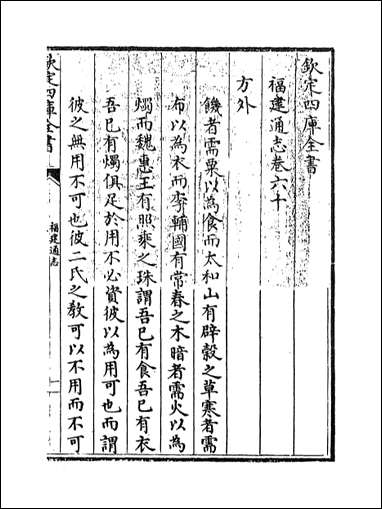 欽定四庫全書
福建通志卷六十
方外
饑者需粟以為食而太和山有辟穀之草寒者需
布以為衣而李輔國有常春之木暗者需火以為
燭而魏惠王有照乗之珠謂吾已有食吾已有衣
吾已有燭俱足於用不必資彼以為用可也而謂
彼之無用不可也彼二氏之教可以不用而不可
欽定四庫全書
福建通志